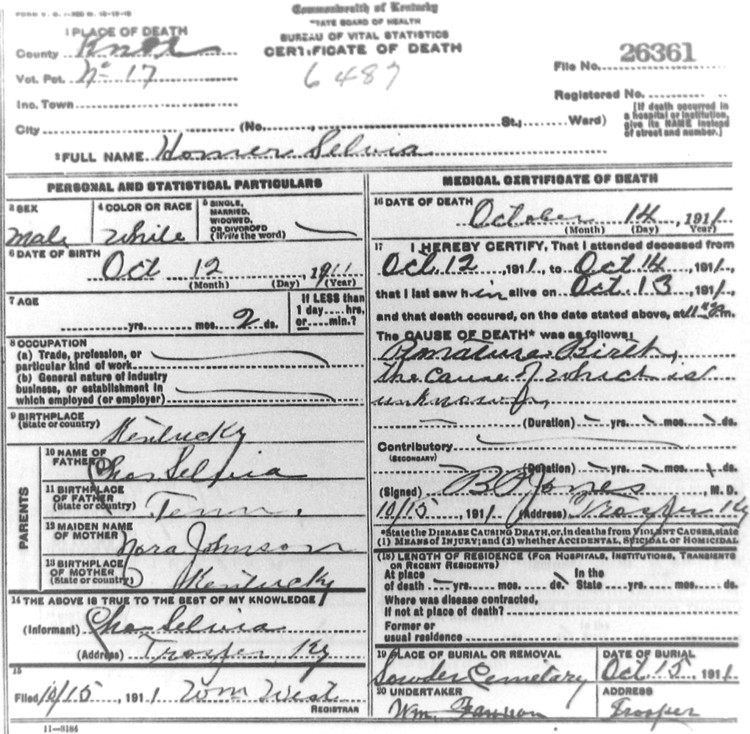 Commonwealth of Kentucky
STATE BOARD OF HEALTH
BUREAU OF VITAL STATISTICS
CERTIFICATE OF DEATH
6487
1 PLACE OF DEATH
County Knox
Vot. Pct. No 17
Inc. Town
City (No. St.; Ward)
File No. 26361
Registered No.
[If death occurred in
a hospital or institution,
give its NAME instead
of street and number.]
2 FULL NAME Homer Selvia
PERSONAL AND STATISTICAL PARTICULARS
3 SEX
Male
4 COLOR OR RACE
White
5 SINGLE,
MARRIED,
WIDOWED,
OR DIVORCED
(Write the word)
6 DATE OF BIRTH
Oct 12, 1911
(Month) (Day) (Year)
7 AGE
yrs. mos. 2 ds.
If LESS than
1 day.....hrs.
or.....min.?
8 OCCUPATION
(a) Trade, profession, or
particular kind of work
(b) General nature of industry
business, or establishment in
which employed (or employer)
9 BIRTHPLACE
(State or country)
Kentucky
PARENTS
10 NAME OF
FATHER Chas Selvia
11 BIRTHPLACE
OF FATHER
(State or country) Tenn.
12 MAIDEN NAME
OF MOTHER Nora Johnson
13 BIRTHPLACE
OF MOTHER
(State or country) Kentucky
14 THE ABOVE IS TRUE TO THE BEST OF MY KNOWLEDGE
(Informant) Chas Selvia
(Address) Trosper, Ky
15
Filed 10/15, 1911 Wm West
REGISTRAR
11-3184
MEDICAL CERTIFICATE OF DEATH
16 DATE OF DEATH
October 14, 1911
(Month) (Day) (Year)
17 I HEREBY CERTIFY, That I attended deceased from
Oct. 12, 1911, to Oct 14, 1911,
that I last saw him alive on Oct. 13, 1911
and that death occured, on the date stated above, at m.
The CAUSE OF DEATH* was as follows:
Premature Birth,
the cause of which is
unknown,
(Duration) yrs. mos. ds.
Contributory
(SECONDARY)
(Duration) yrs. mos. ds.
(Signed) Jones M.D.
10/15, 1911 (Address) Trosper Ky
*State the DISEASE CAUSING DEATH, or, in deaths from VIOLENT CAUSES, state
(1) MEANS OF INJURY; and (2) whether ACCIDENTAL, SUICIDAL or HOMICIDAL
(18) LENGTH OF RESIDENCE (FOR HOSPITALS, INSTITUTIONS, TRANSIENTS
OR RECENT RESIDENTS)
At place
of death yrs. mos. ds.
In the
State yrs. mos. ds.
Where was disease contracted,
If not at place of death?
Former or
usual residence
19 PLACE OF BURIAL OR REMOVAL
Sowder Cemetary
DATE OF BURIAL
Oct 15, 1911
20 UNDERTAKER
Wm.
ADDRESS
Trosper